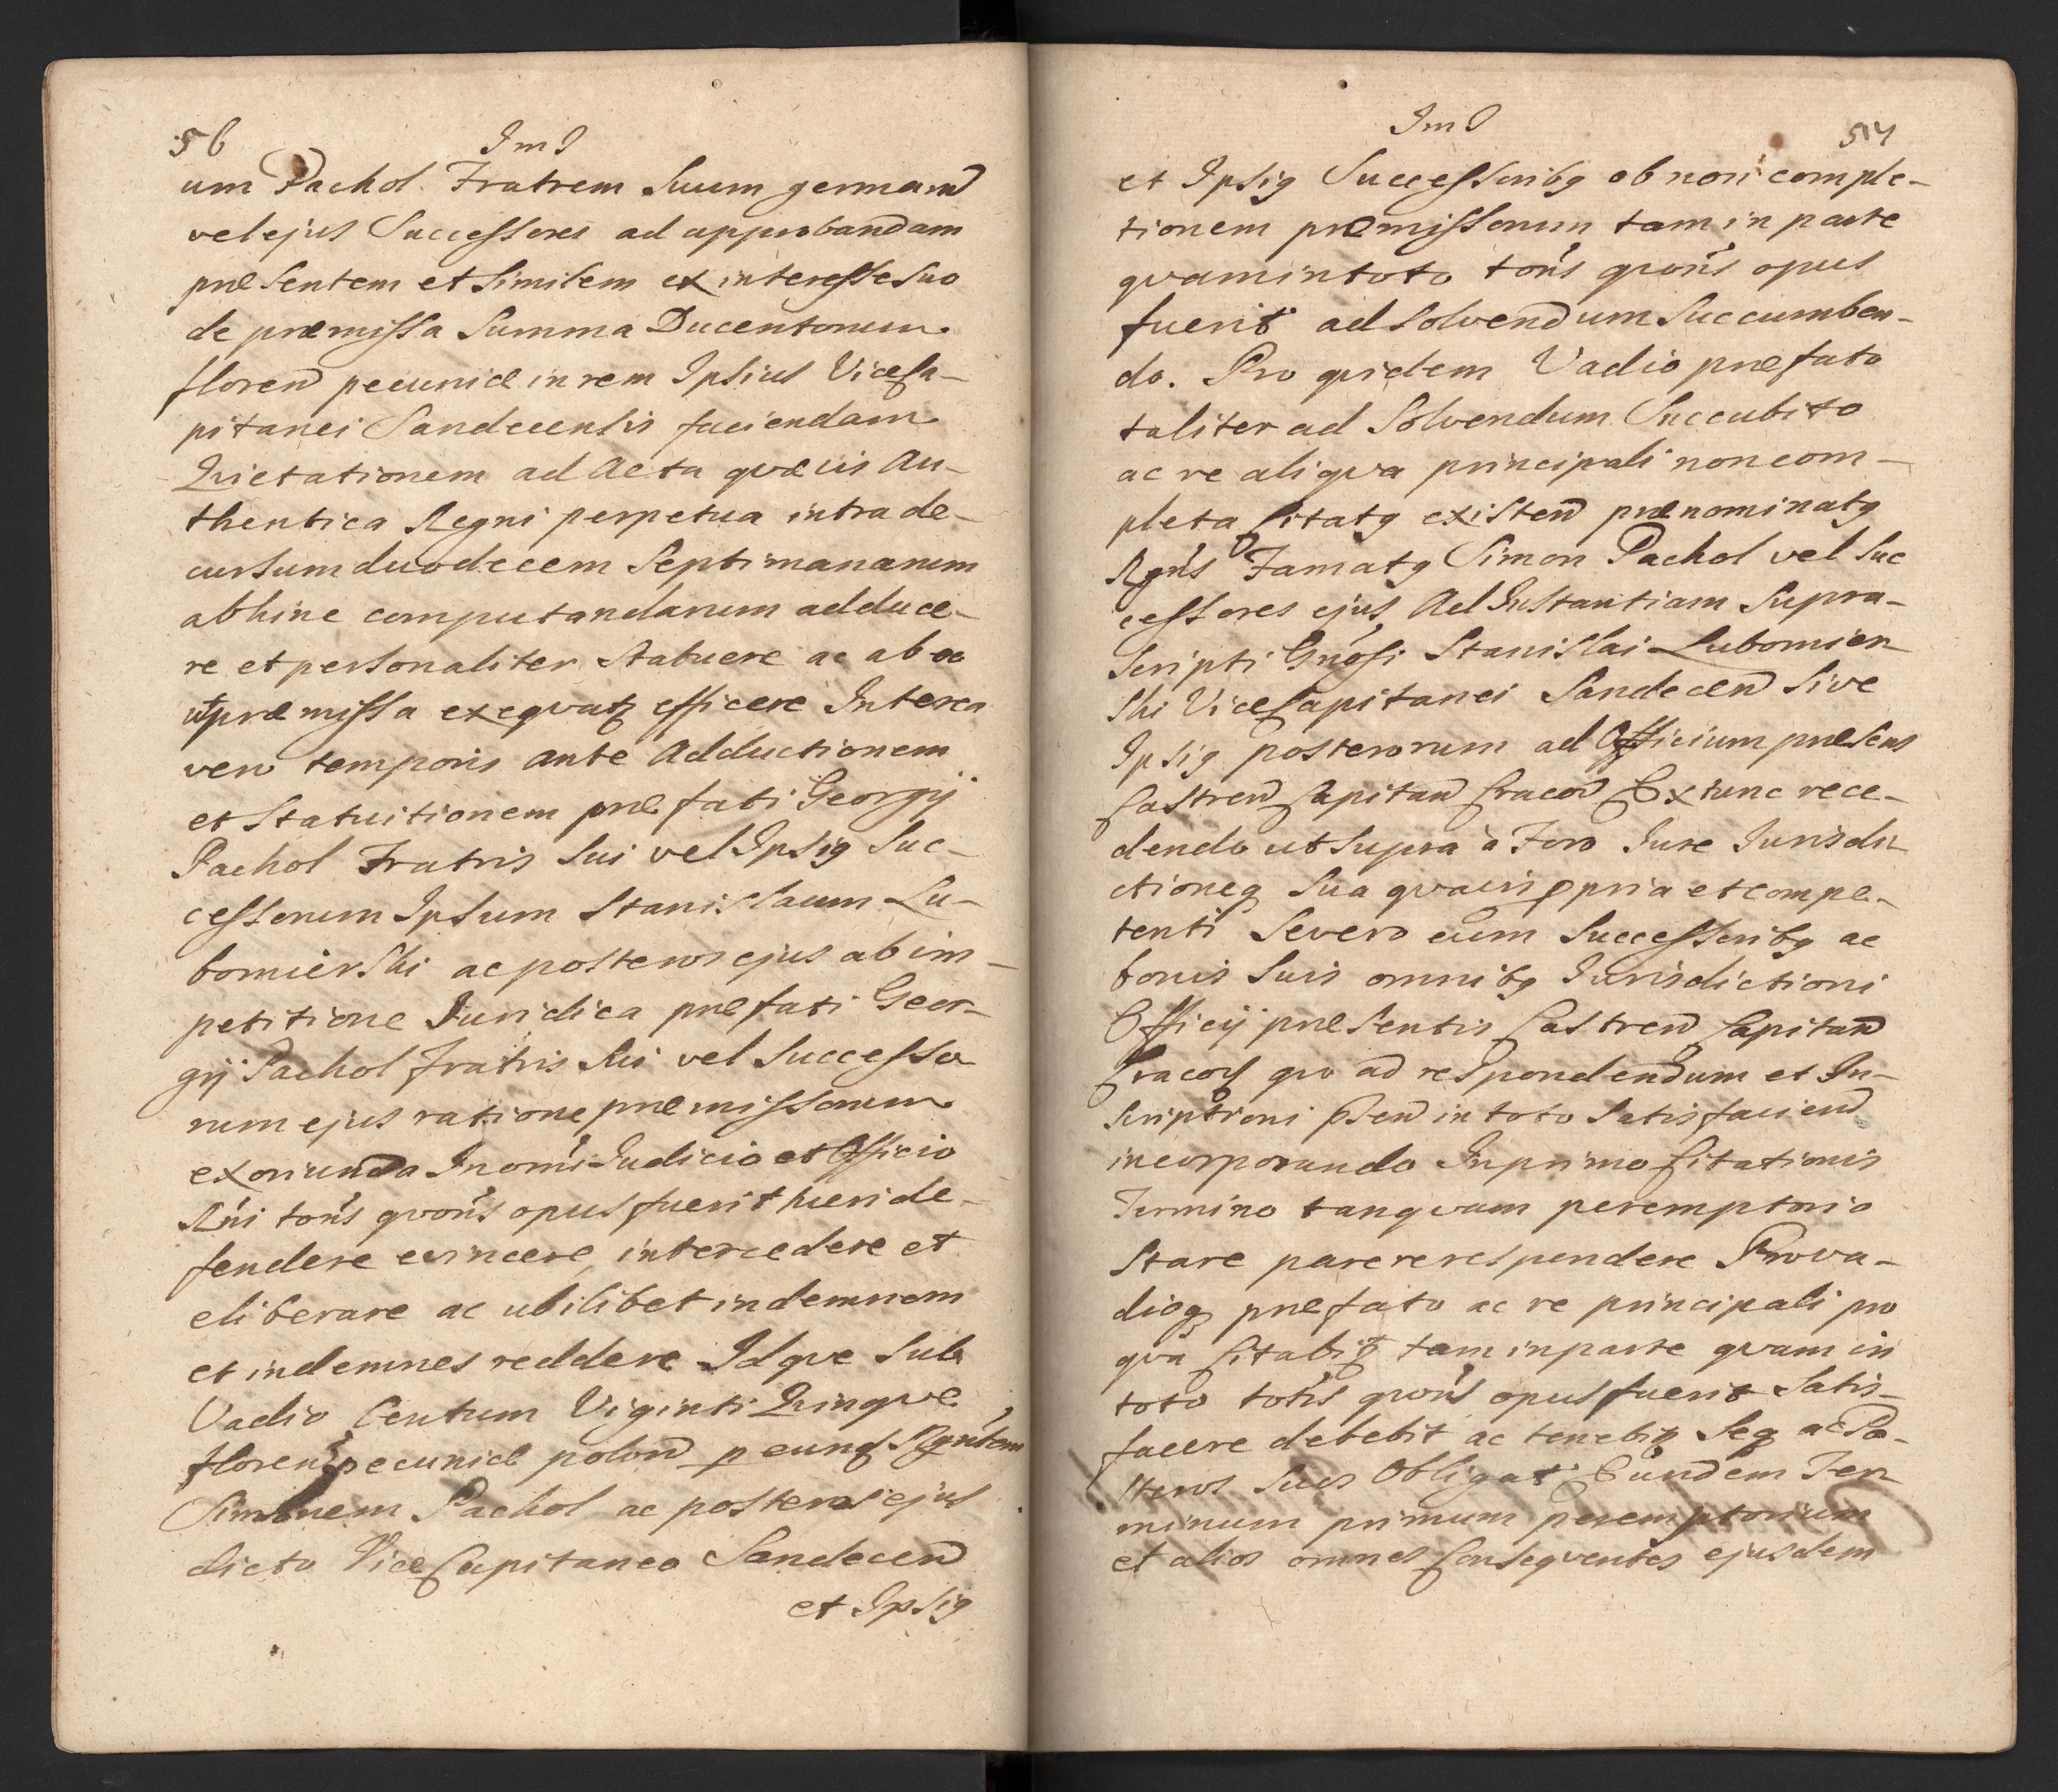 56
ImI
um Pachol. Fratrem Suum germand
vel ejus Successores ad approbandam
præsentem et Similem ex interesse Suo
de præmissa Summa Ducentorum
floren pecuniæ in rem Ipsius ViceCa-
pitanei Sandecensis faciendam
Quietationem ad Acta quævis Au-
thentica Regni perpetua intra de-
cursum duodecem Septimanarum
abhinc computandarum adduce-
re et personaliter Statuere ac ab oo
ut præmissa exequatq efficere Interea
vero temporis ante Adductionem
et Statuitionem præfati Georgij
Pachol Fratris Sui vel Ipsig Suc-
cessorum Ipsum Stanislaum Lu-
bomierSki ac posteros ejus ab im-
petitione Juridica præfati Geor-
gij Pachol fratris Sui vel Successo
rum ejus ratione præmissorum
exoriunda In omi Judicio et Officio
Rni tons quons opus fuerit tueri de-
fendere evincere intercedere et
eliberare ac ubilibet indemnem
et indemnes reddere Idque Sub
Vadio Centum Viginti Quinque
floren pecuniæ polon p eund Rgntem
Simonem Pachol ac posteros ejus
dicto ViceCapitaneo Sandecen
et Ipsig
ImI
57
et Ipsig Successoribg ob non comple-
tionem præmissorum tam in parte
quam in toto tons quons opus
fuerit ad Solvendum Succumben-
do. Pro quidem Vadio præfato
taliter ad Solvendum Succubito
ac re aliqua principali non com-
pleta Citatg existen prænominatg
Rgns Famatg Simon Pachol vel Suc
cessores ejus Ad Instantiam Supra-
Scripti Gnosi Stanislai Lubomier
Ski ViceCapitanei Sandecen Sive
Ipsig posterorum ad Officium præsens
Castren Capitan Cracov Extunc rece-
dendo ut Supra à Foro Jure Jurisdi-
ctioneq Sua quavis ppria et compe-
tenti Severo eum Successoribg ac
bonis Suis omnibg Jurisdictioni
Officij præsentis Castren Capitan
Cracov quo ad respondendum et In-
Scriptioni psen in toto Satisfaciend
incorporando In primo Citationis
Termino tanquam peremptorio
Stare parere respondere Prova-
dioq præfato ac re principali pro
qua Citabit tam in parte quam in
toto totis quons opus fuerit Satis-
facere debebit ac tenebit Seq ac Po-
Steros Suos Obligat Eundem Ter
minum primum peremptorium
et alios omnes Consequentes ejusdem